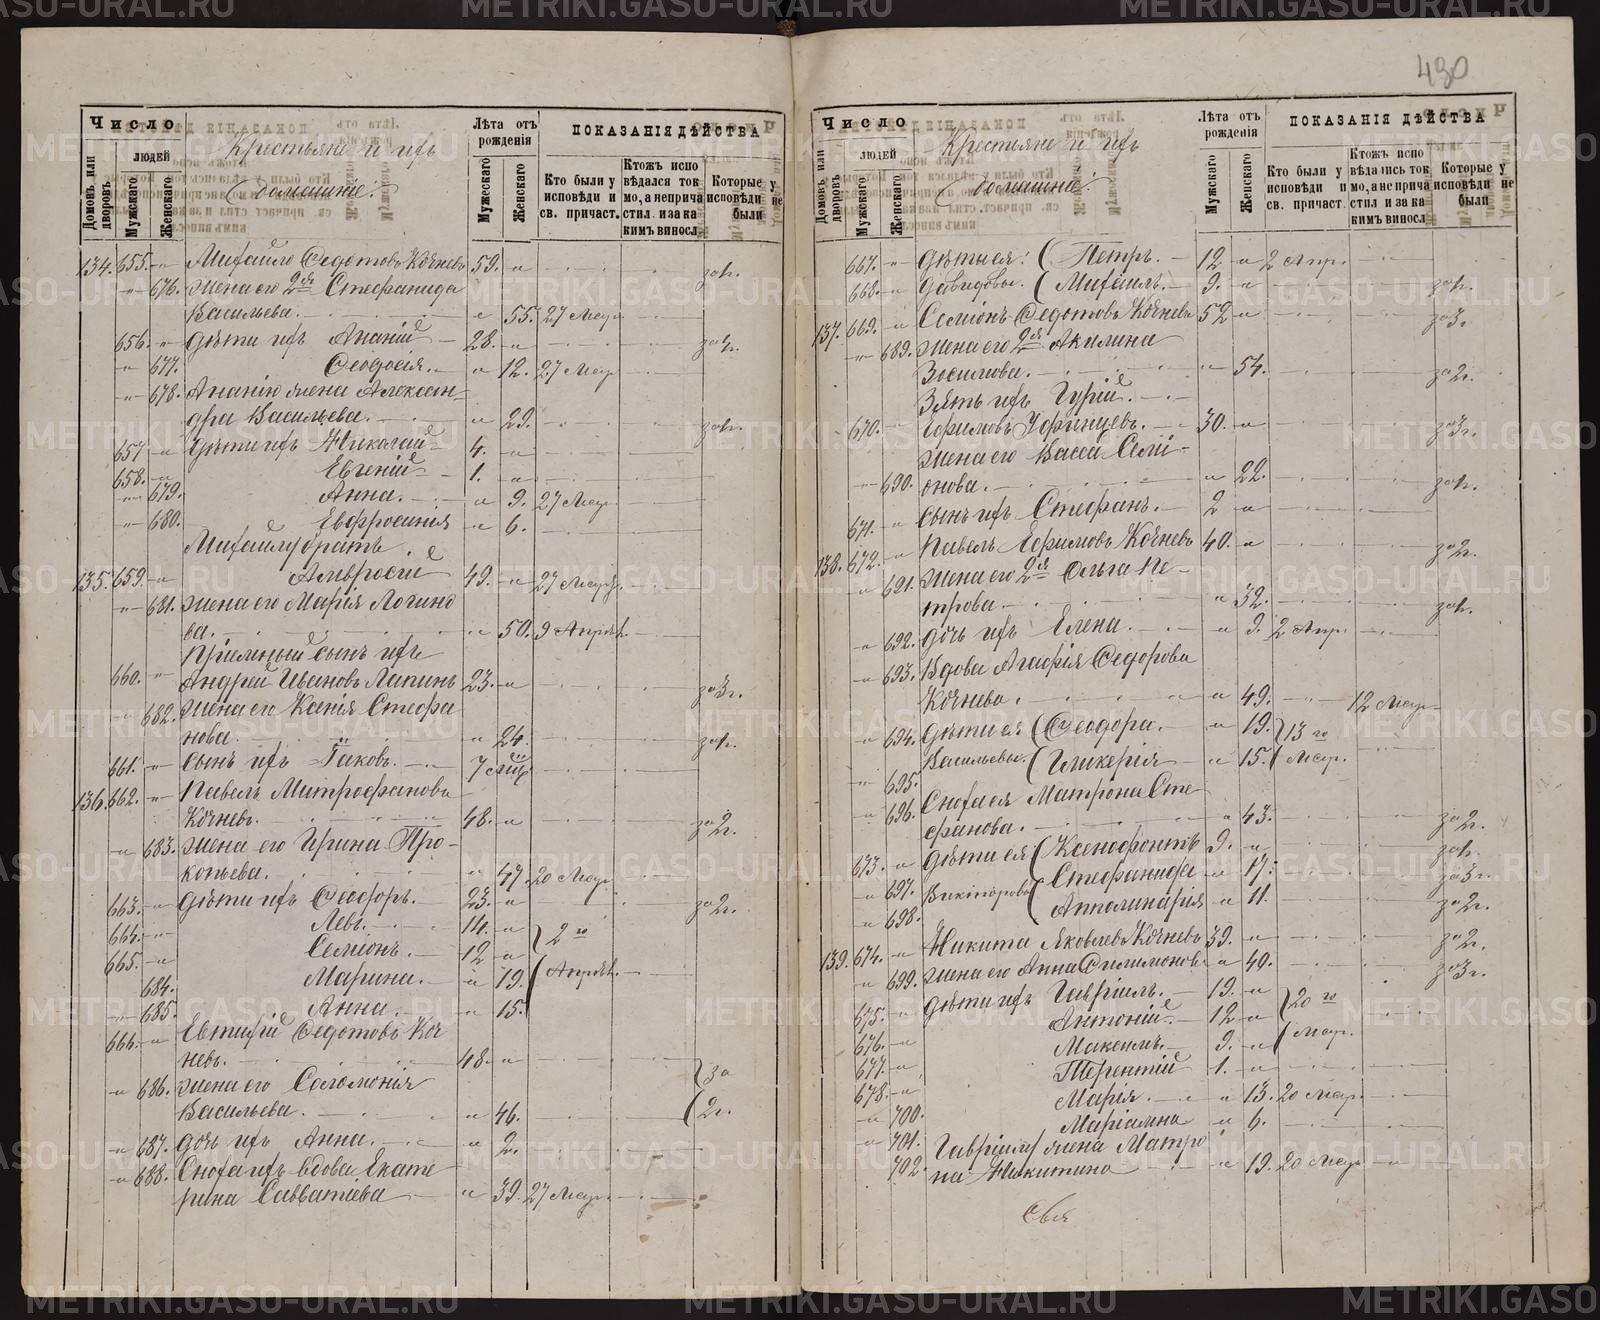 METRIKI.GASO-URAL.RU
490
Число
Домовъ или дворовъ
людей
Мужскаго
Женскаго
Крестьяне и ихъ
домашніе:
Лѣта отъ рожденія
Мужескаго
Женскаго
ПОКАЗАНІЯ ДѢЙСТВА
Кто были у исповѣди и св. причаст.
Ктожъ испо вѣдался ток мо, а неприча стил и за ка кимъ виносл
Которые у исповѣди не были
134. 655. " Михаило Федотовъ Кочневъ 59. " за 1г.
" 676. Жена его 2я Стефанида
Васильева. " 55. 27 Мар.
656. " Дѣти ихъ Ананій 28. "
" 677. Феодосія. " 12. 27 Мар
" 678. Ананію жена Алексан=
дра Васильева. " 29. за 1г.
657 " Дѣти ихъ Николай 4. "
658. " Евгеній 1. "
" 679. Анна. " 9. 27 Мар.
" 680. Евфросинія " 6.
Михаилу братъ
135. 659. " Амвросій 49. " 27 Мар.
" 681. Жена его Марія Логино
ва. " 50. 9 Апрѣл.
Пріемный сынъ ихъ
660. " Андрей Ивановъ Лапинъ 23. " за 3г.
" 682. Жена его Ксенія Стефа
нова. " 24. за 1г.
661. " Сынъ ихъ Іаковъ. 7 мѣс
136. 662. " Павелъ Митрофановъ
Кочневъ. 48. " за 2г.
" 683. Жена его Ирина Про-
копьева. " 47. 20 Мар
663. " Дѣти ихъ Феодоръ. 23. " за 2г.
664. " Левъ. 14. " 2 го
665. " Семіонъ. 12 "
684. Марина. " 19. Апрѣл.
" 685. Анна. " 15.
666. " Евтихій Федотовъ Коч
невъ. 48. "
" 686. Жена его Соломонія за
Васильева. " 46. 2г.
" 687. Дочь ихъ Анна. " 2.
" 688. Сноха ихъ вдова Екате
рина Савватіева " 39. 27 Мар.
Число
Домовъ или дворовъ
людей
Мужскаго
Женскаго
Крестьяне и ихъ
домашніе:
Лѣта отъ рожденія
Мужскаго
Женскаго
ПОКАЗАНІЯ ДѢЙСТВА
Кто были у исповѣди и св. причаст.
Ктожъ испо вѣдались ток мо, а не прича стил и за ка кимъ виносл
Которые у исповѣди не были
667. " Дѣти ея: Петръ. 12 " 2 Апр.
668. " Давидовы. Михаилъ. 9. " за 1г.
137. 669. " Семіонъ Федотовъ Кочневъ 52 " за 3г.
" 689. Жена его 2я Акилина
Зосимова. " 54. за 2г.
Зять ихъ Гурій
670. " Ефимовъ Уфинцевъ. 30. " за 3г.
Жена его Васса Семі-
" 690. онова. " 22. за 1г.
671. " Сынъ ихъ Стефанъ. 2 "
138. 672. " Павелъ Ефимовъ Кочневъ 40. " за 2г.
" 691. Жена его 2я Ольга Пе-
трова. " 32. за 1г.
" 692. Дочь ихъ Елена. " 9. 2 Апр.
" 693. Вдова Агафія Федорова
Кочнева. " 49. " 12 Мар
" 694. Дѣти ея Феодора. " 19. 13 го
" 695. Васильевы. Гликерія " 15. Мар.
" 696. Сноха ея Матрона Сте
фанова. " 43. за 2г.
673. " Дѣти ея Ксенофонтъ 9. " за 1г.
" 697. Викторовы Стефанида " 17. за 3г.
" 698. Апполинарія " 11. за 2г.
139. 674. " Никита Яковлевъ Кочневъ 39. " за 2г.
" 699. Жена его Анна Филимонова " 40. за 3г.
675. " Дѣти ихъ Гавріилъ. 19. " 20 го
676. " Антоній. 12 "
677. " Максимъ. 9. " Мар.
678. " Терентій 1. "
" 700. Марія. " 13. 20 Мар.
" 701. Маріамна " 6.
702. Гавріилу жена Матро
на Никитина " 19. 20 Мар.